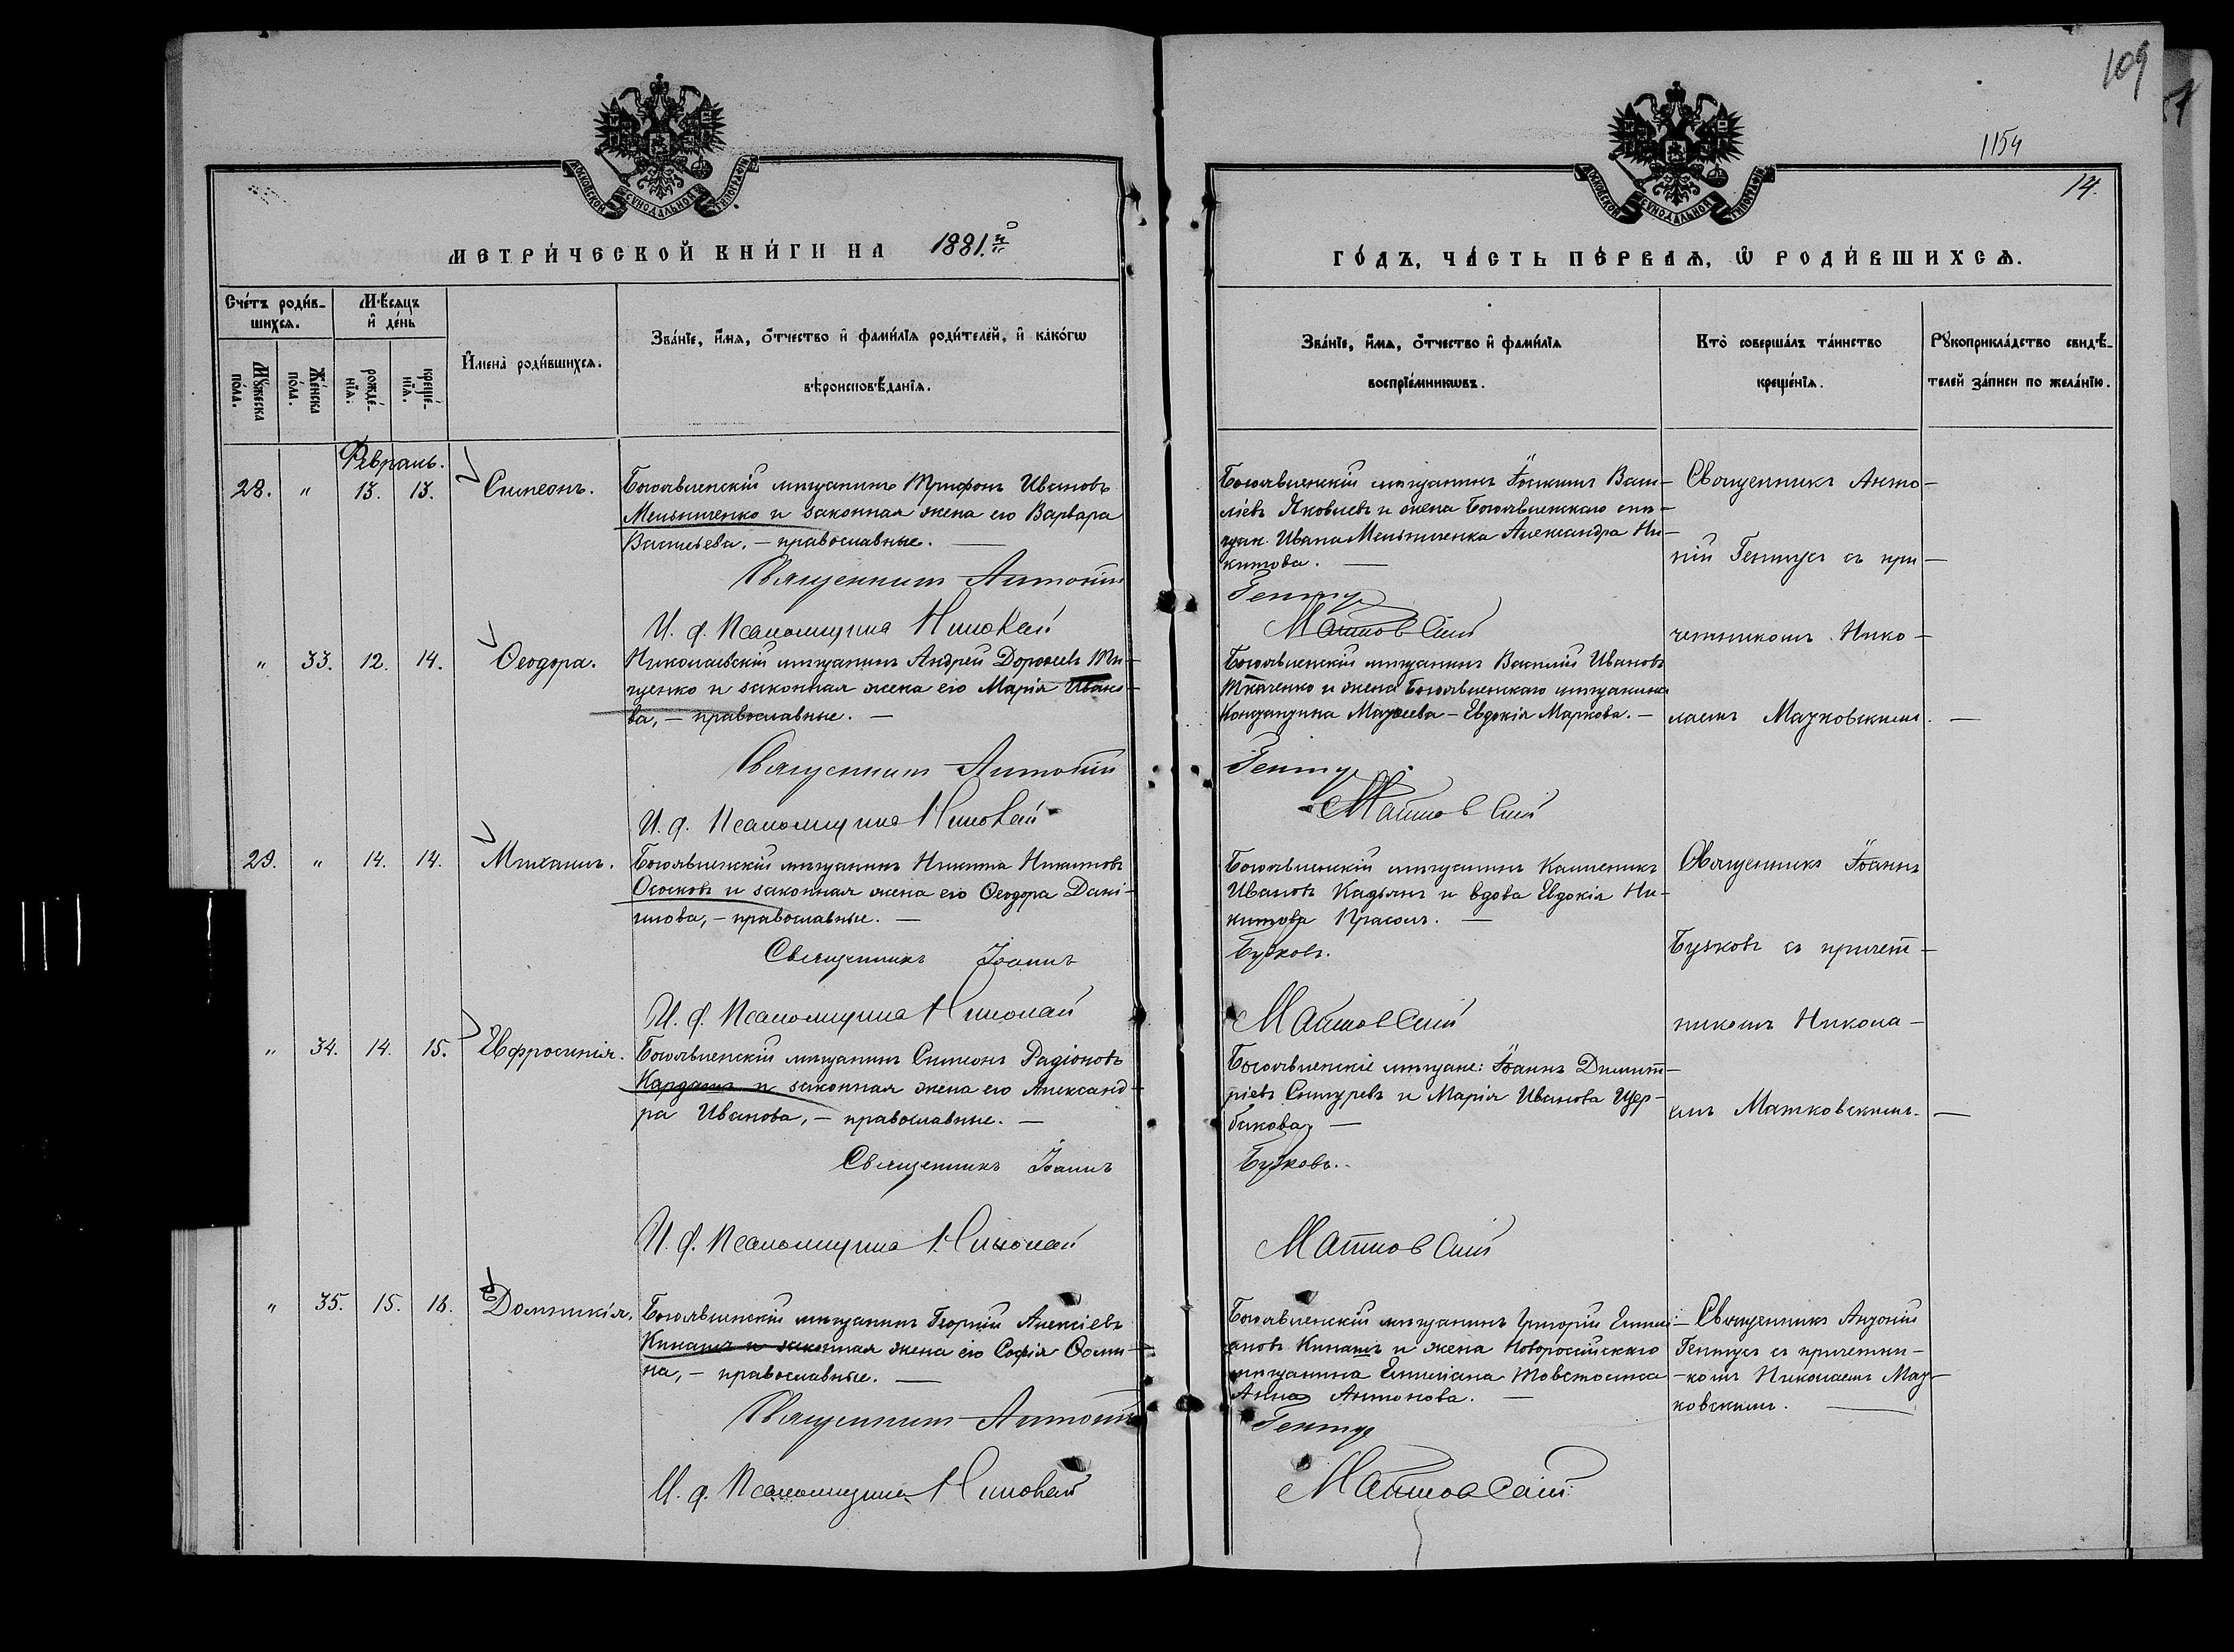 109
1154
14.
МОСКОВСКОЙ СѴНОДАЛЬНОЙ ТИПОГРАФІИ
МОСКОВСКОЙ СѴНОДАЛЬНОЙ ТИПОГРАФІИ
МЕТРИ́ЧЕСКОЙ КНИ́ГИ НА 1881.й
ГО́ДЪ, ЧА́СТЬ ПЕ́РВАѦ, Ѡ҆ РОДИ́ВШИХСѦ.
Сче́тъ роди́в-
шихсѧ.
Мѹ́жеска по́ла.
Же́нска по́ла.
Мѣ́сѧцъ
и҆ де́нь
рожде́-нїѧ.
креще́-нїѧ.
И҆мена̀ роди́вшихсѧ.
Зва́нїе, и҆́мѧ, ѻ҆́тчество и҆ фами́лїѧ роди́телей, и҆ како́гѡ
вѣроисповѣ́данїѧ.
Зва́нїе, и҆́мѧ, ѻ҆́тчество и҆ фами́лїѧ
воспрїе́мникѡвъ.
Кто̀ соверша́лъ та́инство
креще́нїѧ.
Рѹкоприкла́дство свидѣ́-
телей за́писи по жела́нїю.
Февраль.
28. " 13. 13. Симеонъ.
Богоявленскій мѣщанинъ Трифонъ Ивановъ
Мельниченко и законная жена его Варвара
Васильева. – православные. —
Священникъ Антоній
И. д. Псаломщика Николай
Богоявленскій мѣщанинъ Іоакимъ Васи-
ліевъ Яковлевъ и жена Богоявленскаго мѣ-
щан. Ивана Мельниченка Александра Ни-
китова. —
Гентус
Матковскій
Священникъ Анто-
ній Гентусъ съ при-
четникомъ Нико-
лаемъ Матковскимъ. —
" 33. 12. 14. Ѳеодора.
Николаевскій мѣщанинъ Андрей Дороѳеевъ Ти-
щенко и законная жена его Марія Ивано-
ва, – православные. —
Священникъ Антоній
И. д. Псаломщика Николай
Богоявленскій мѣщанинъ Василій Ивановъ
Ткаченко и жена Богоявленскаго мѣщанина
Маркова. —
Гентус
Матковскій
29. " 14. 14. Михаилъ.
Богоявленскій мѣщанинъ Никита Никитовъ
Ососковъ и законная жена его Ѳеодора Дані-
илова, – православные. —
Священникъ Іоаннъ
И. д. Псаломщика Николай
Богоявленскій мѣщанинъ Каллиникъ
Ивановъ Кадьянъ и вдова Евдокія Ни-
китова Прасолъ. —
Бузковъ.
Матковскій
Священникъ Іоаннъ
Бузковъ съ причет-
никомъ Никола-
емъ Матковскимъ. —
" 34. 14. 15. Евфросинія.
Богоявленскій мѣщанинъ Симеонъ Радіоновъ
Кардашъ и законная жена его Александ-
ра Иванова, – православные. —
Священникъ Іоаннъ
И. д. Псаломщика Николай
Богоявленскіе мѣщане: Іоаннъ Димит-
ріевъ и Марія Иванова Щер-
бакова, —
Бузковъ.
Матковскій
" 35. 15. 16. Домникія.
Богоявленскій мѣщанинъ Георгій Алексіевъ
Кинашъ и законная жена его Софія Ѳоми-
на, – православные. —
Священникъ Антоній
И. д. Псаломщика Николай
Богоявленскій мѣщанинъ Григорій Емили-
ановъ Кинашъ и жена Новоросійскаго
мѣщанина Емиліана
Анна Антонова. —
Гентус
Матковскій
Священникъ Антоній
Гентусъ съ причетни-
комъ Николаемъ Мат-
ковскимъ. —